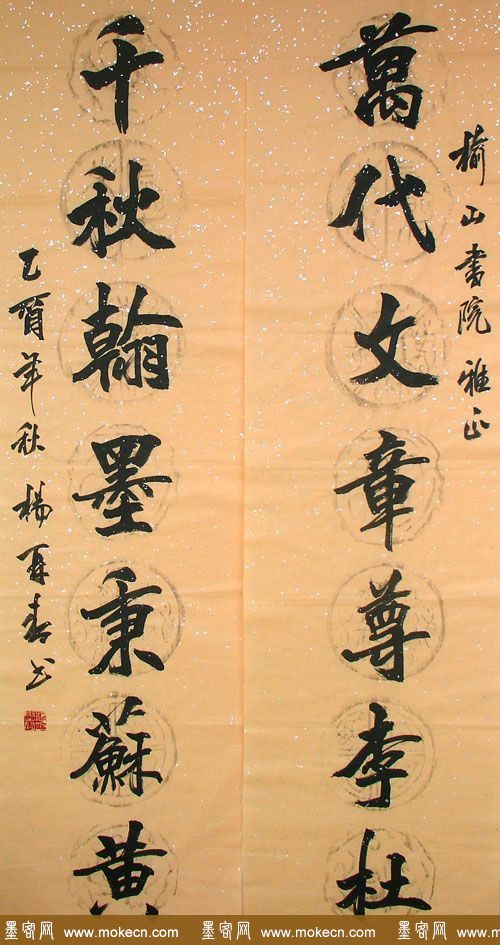 榆山書院雅正
萬代文章尊李杜
千秋翰墨秉蘇黄
乙酉年秋 楊再春书
墨客网 www.mokecn.com 墨客网 www.mokecn.com 墨客网 www.mokecn.com